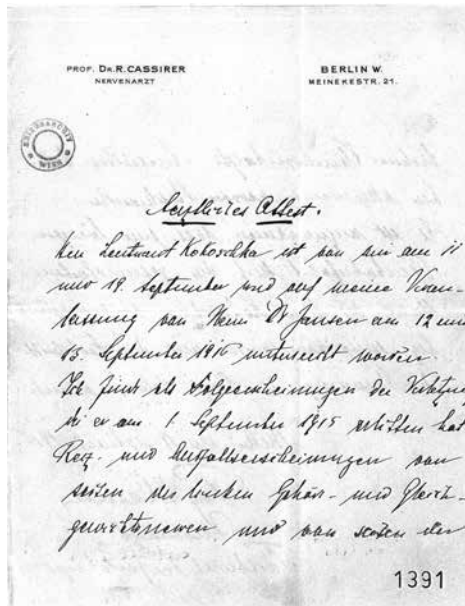 PROF. DR. R. CASSIRER
NERVENARZT
BERLIN W.
MEINEKESTR. 21.
KRIEGSARCHIV
WIEN
Aerztliches Attest.
Herr Leutnant Kokoschka ist von mir am 11
und 19. September und auf meine Veran-
lassung von Herrn Dr Jansen am 12 und
13. September 1916 untersucht worden.
Ich finde als Folgeerscheinungen der Verletzung
die er am 1. September 1915 erlitten hat
Reiz- und Ausfallserscheinungen von
seiten des linken Gehör- und Gleich-
gewichtsnerven und von seiten der
1391